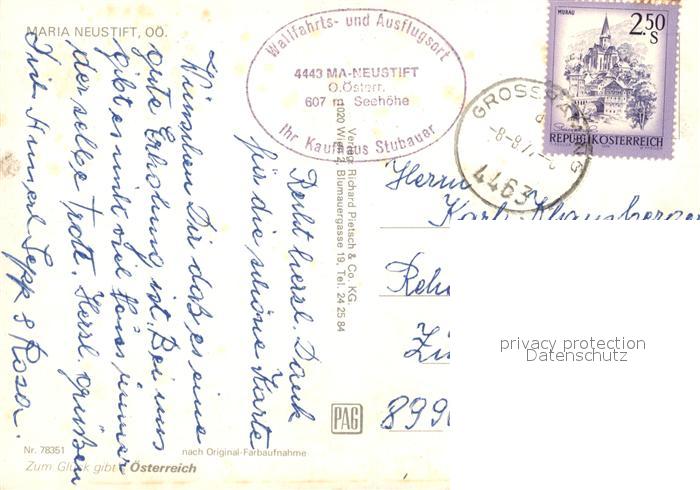 MARIA NEUSTIFT, OÖ.
Wallfahrts- und Ausflugsort
4443 MA-NEUSTIFT
O.Österr.
607 m Seehöhe
Ihr Kaufhaus Stubauer
MURAU
2.50
S
REPUBLIK ÖSTERREICH
GROSSRAMING
4463
Recht herzl. Dank
für die schöne Karte
Wünschen Dir daß es eine
gute Erholung ist. Bei uns
gibt es nicht viel Neues immer
der selbe Trott. Herzl. Grüßen
Sepp & Rosa.
Verlag Richard Pietsch & Co. KG.
1020 Wien 2, Blumauergasse 19, Tel. 24 25 84
Herrn
Karl
899
PAG
privacy protection
Datenschutz
Nr. 78351
nach Original-Farbaufnahme
Zum Glück gibt's Österreich